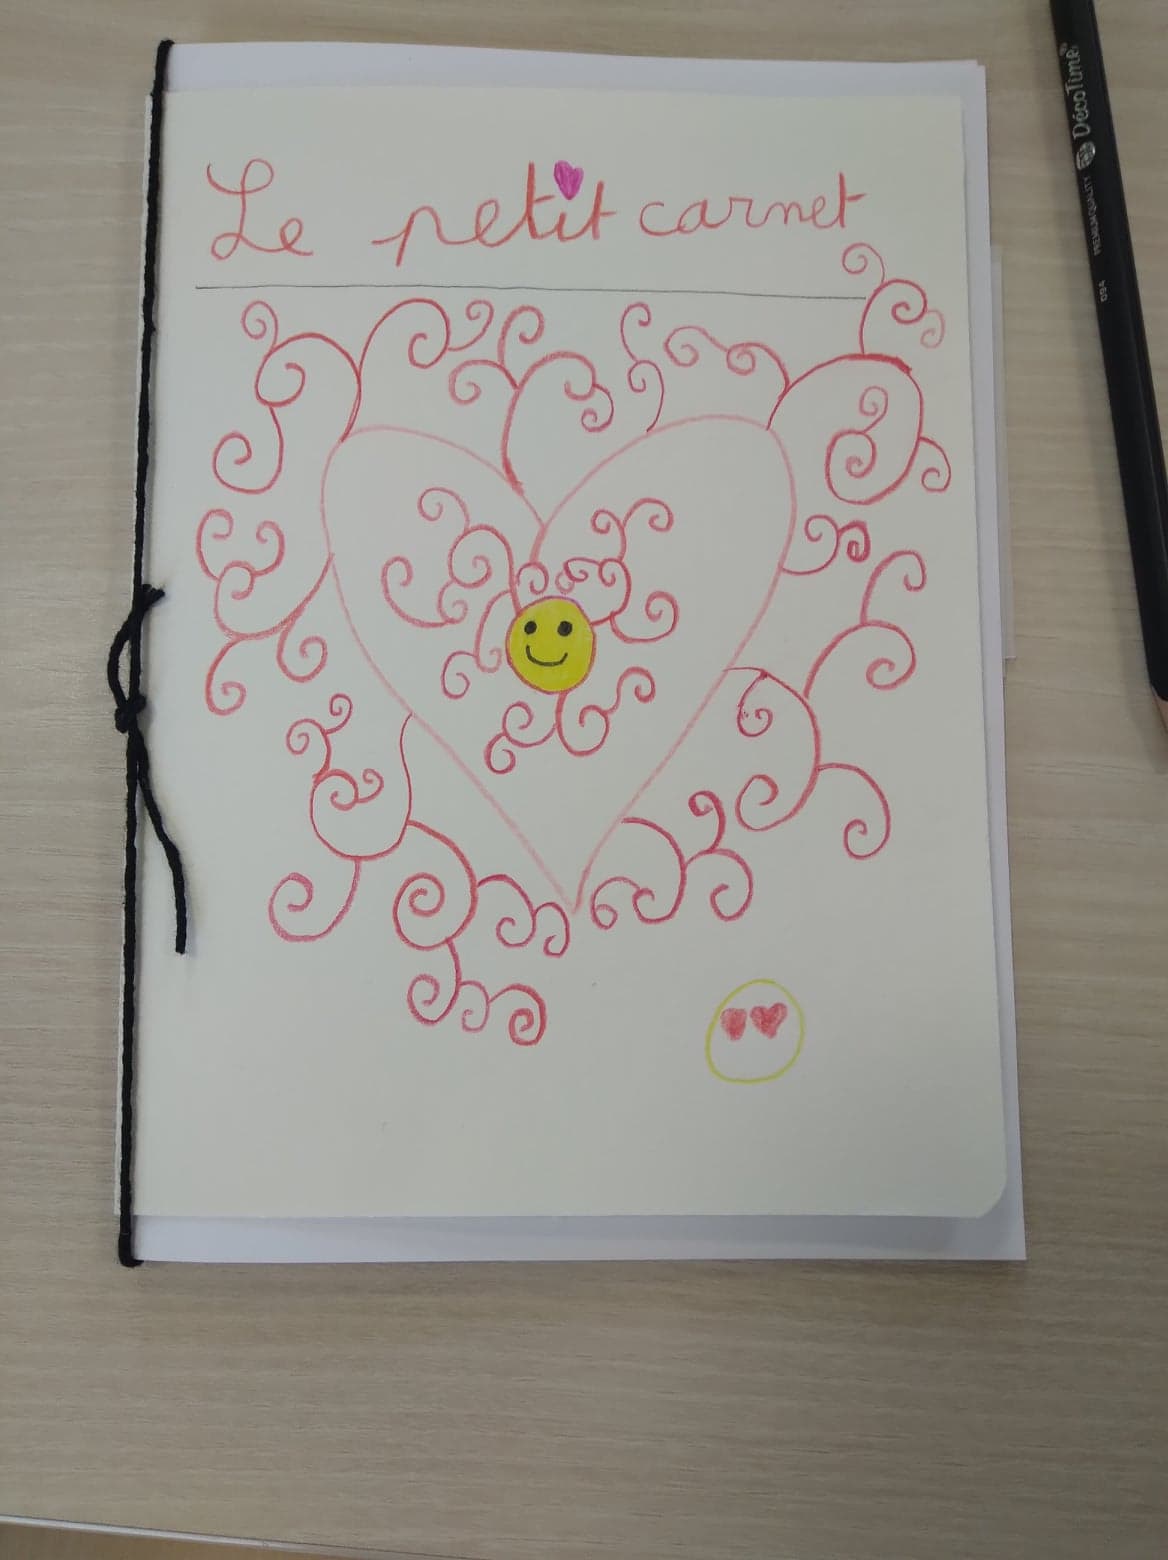 Le petit carnet
DécoTime®
PREMIUM QUALITY
094